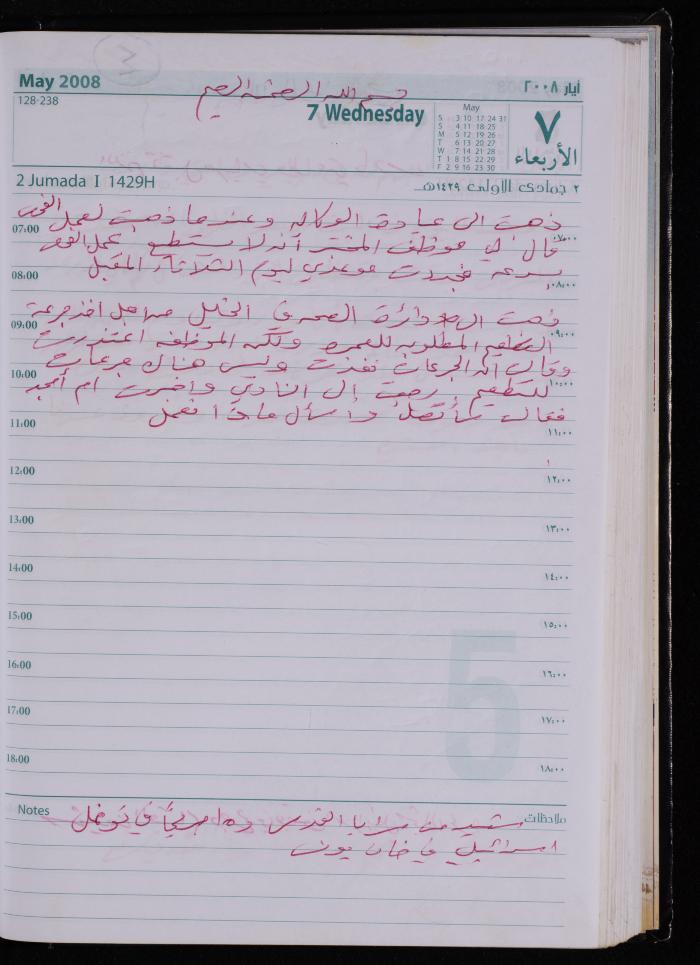 May 2008
أيار ٢٠٠٨
128-238
بسم الله الرحمن الرحيم
7 Wednesday
May
S 3 10 17 24 31
S 4 11 18 25
M 5 12 19 26
T 6 13 20 27
W 7 14 21 28
T 1 8 15 22 29
F 2 9 16 23 30
٧
الأربعاء
2 Jumada I 1429H
٢ جمادى الأولى ١٤٢٩هـ
ذهبت الى عيادة الوكالة وعندما ذهبت لعمل الفحص
07:00 ٠٧:٠٠
قال لي موظف المختبر أنه لا يستطيع عمل الفحص
بسرعة فجددت موعدي ليوم الثلاثاء المقبل
08:00 ٠٨:٠٠
ذهبت الى دائرة الصحة في الخليل من اجل اخذ جرعة
09:00 ٠٩:٠٠
التطعيم المطلوبه للعمره ولكن الموظفه اعتذرت
وقالت أن الجرعات نفذت وليس هناك جرعات
10:00 ١٠:٠٠
للتطعيم رجعت إلى النادي واخبرت ام أمجد
فقالت سأتصل وأسأل ماذا نعمل
11:00 ١١:٠٠
12:00 ١٢:٠٠
13:00 ١٣:٠٠
14:00 ١٤:٠٠
15:00 ١٥:٠٠
16:00 ١٦:٠٠
17:00 ١٧:٠٠
18:00 ١٨:٠٠
5
Notes
ملاحظات
شهيد من سرايا القدس و ١٥ جريحاً في توغل
اسرائيلي في خان يونس